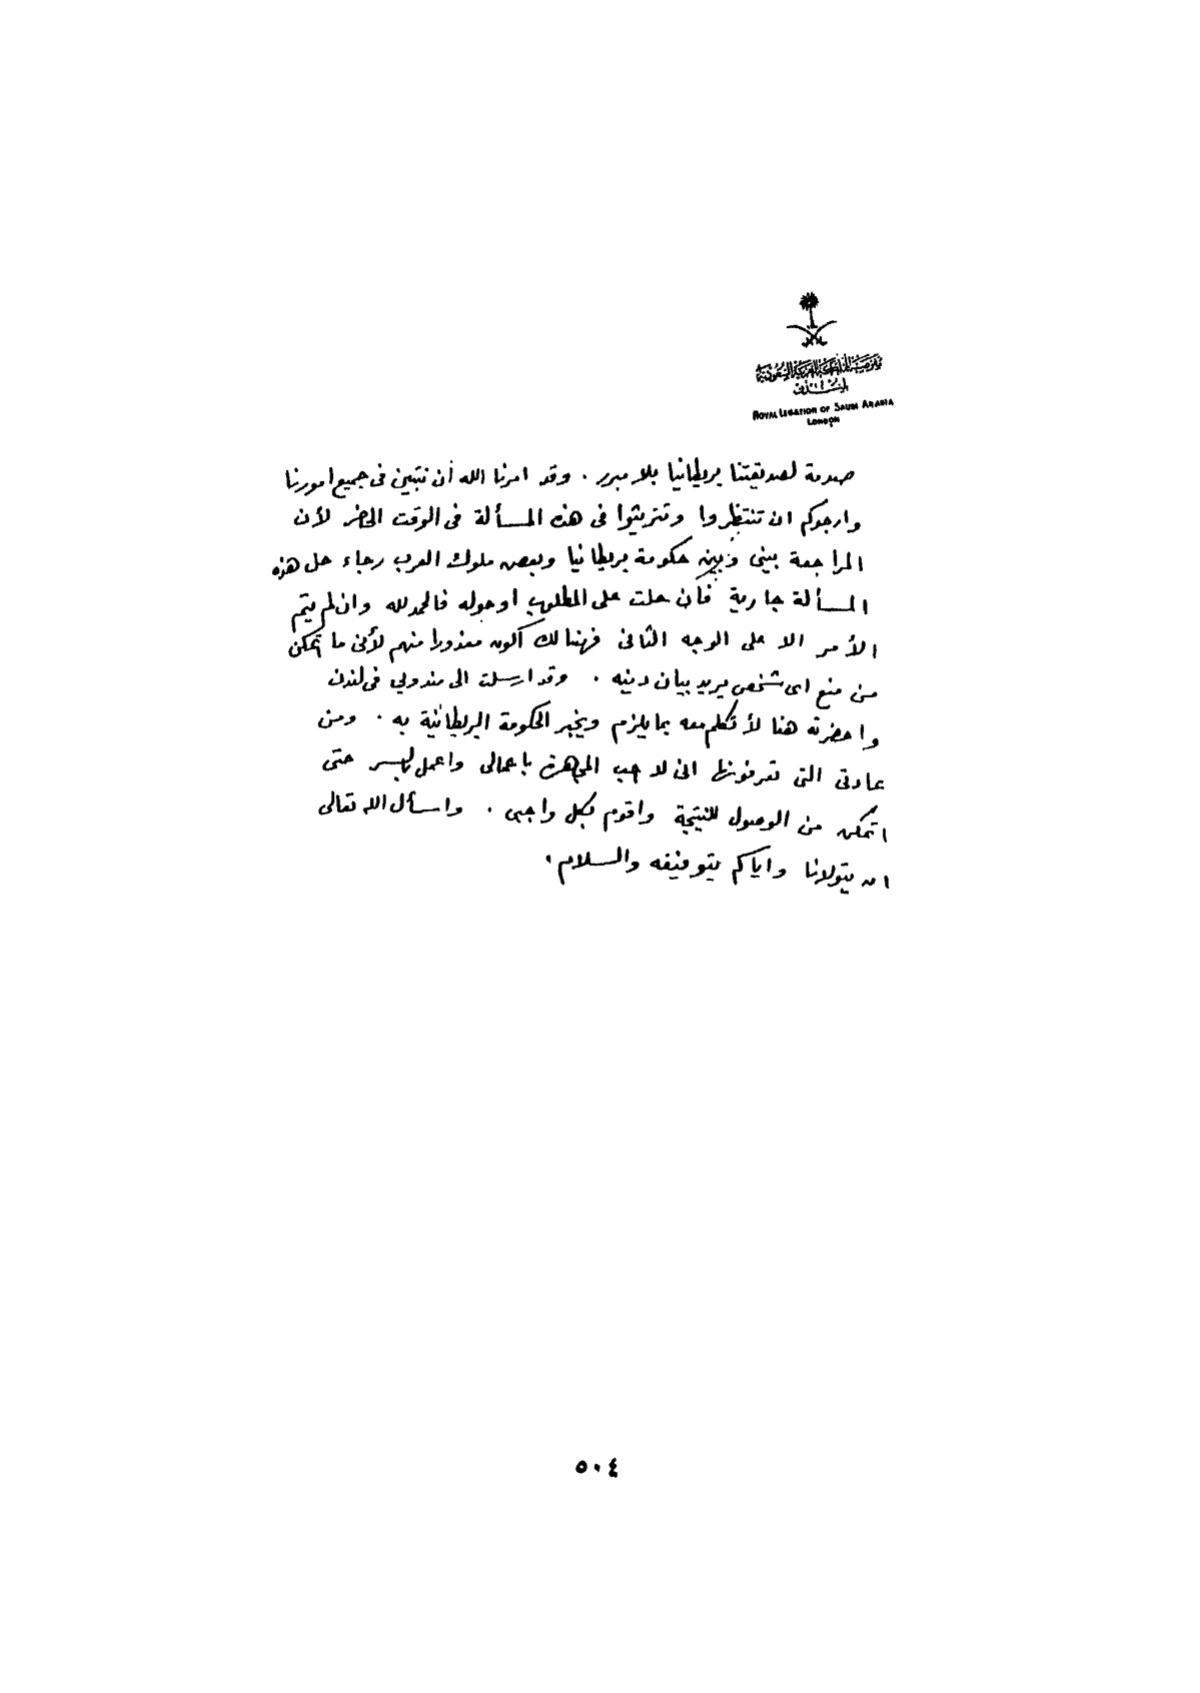 مفوضية المملكة العربية السعودية
بلندن
ROYAL LEGATION OF SAUDI ARABIA
LONDON
صدمة لصديقتنا بريطانيا بلا مبرر . وقد امرنا الله أن نتبين فى جميع امورنا
وارجوكم ان تنتظروا وتتريثوا فى هذه المسألة فى الوقت الحاضر لأن
المراجعة بينى وبين حكومة بريطانيا وبعض ملوك العرب رجاء حل هذه
المسألة جارية فأن حلت على المطلوب أو حوله فالحمد لله وان لم يتم
الأمر الا على الوجه الثانى فهنالك أكون معذورا منهم لأنى ما اتمكن
من منع اى شخص يريد بيان دينه . وقد ارسلت الى مندوبي فى لندن
واحضرته هنا لأتكلم معه بما يلزم ويخبر الحكومة البريطانية به . ومن
عادتى التى تعرفونها انى لا احب المجاهرة بأعمالى واعمل بالسر حتى
اتمكن من الوصول للنتيجة واقوم بكل واجبى . واسأل الله تعالى
ان يتولانا واياكم بتوفيقه والسلام .
٥٠٤